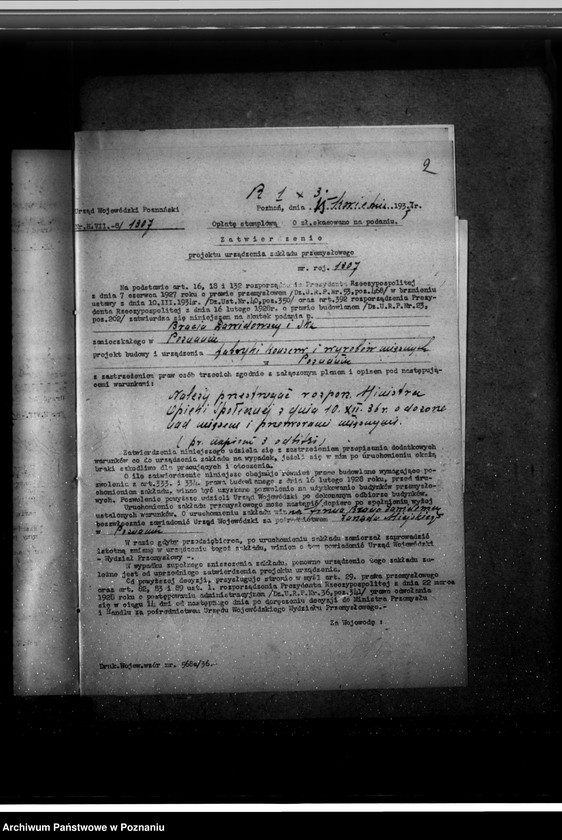 2
R 1 x 3.
Urząd Wojewódzki Poznański
Poznań, dnia 15 kwietnia 1937r.
Nr.H.VII.-8/ 1307
Opłatę stemplową 0 zł. skasowano na podaniu.
Zatwierdzenie
projektu urządzenia zakładu przemysłowego
nr. rej. 1307
Na podstawie art. 16, 18 i 132 rozporządz. Prezydenta Rzeczypospolitej
z dnia 7 czerwca 1927 roku o prawie przemysłowem /Dz.U.R.P.Nr.53,poz.468/ w brzmieniu
ustawy z dnia 10.III.1934r. /Dz.Ust.Nr.40,poz.350/ oraz art.392 rozporządzenia Prezy-
denta Rzeczypospolitej z dnia 16 lutego 1928r. o prawie budowlanem /Dz.U.R.P.Nr.23,
poz.202/ zatwierdza się niniejszem na skutek podania p.
Bracia Dawidowscy i Ska
zamieszkałego w Poznaniu
projekt budowy i urządzenia fabryki konserw i wyrobów mięsnych
w Poznaniu
z zastrzeżeniem praw osób trzecich zgodnie z załączonym planem i opisem pod następują-
cemi warunkami:
Należy przestrzegać rozporz. Ministra
Opieki Społecznej z dnia 10.XII.36r. o dozorze
nad mięsem i przetworami mięsnymi.
(pr. napisać 3 odbitki)
Zatwierdzenia niniejszego udziela się z zastrzeżeniem przepisania dodatkowych
warunków co do urządzenia zakładu na wypadek, jeżeli się w nim po uruchomieniu okażą
braki szkodliwe dla pracujących i otoczenia.
O ile zatwierdzenie niniejsze obejmuje również prace budowlane wymagające po-
zwolenia z art.333. i 334. prawa budowlanego z dnia 16 lutego 1928 roku, przed uru-
chomieniem zakładu, winno być uzyskane pozwolenie na użytkowanie budynków przemysło-
wych. Pozwolenie powyższe udzieli Urząd Wojewódzki po dokonanym odbiorze budynków.
Uruchomienie zakładu przemysłowego może nastąpić dopiero po spełnieniu wyżej
ustalonych warunków. O uruchomieniu zakładu
bezzwłocznie zawiadomić Urząd Wojewódzki za pośrednictwem Zarządu Miejskiego
w Poznaniu
W razie gdyby przedsiębiorca, po uruchomieniu zakładu zamierzał zaprowadzić
istotną zmianę w urządzeniu tegoż zakładu, winien o tem powiadomić Urząd Wojewódzki
- Wydział Przemysłowy -.
W wypadku zupełnego zniszczenia zakładu, ponowne urządzenie tego zakładu za-
leżne jest od uprzedniego zatwierdzenia projektu urządzenia.
Od powyższej decyzji, przysługuje stronie w myśl art. 29. prawa przemysłowego
oraz art. 82, 83 i 89 ust. 1. rozporządzenia Prezydenta Rzeczypospolitej z dnia 22 marca
1928 roku o postępowaniu administracyjnem /Dz.U.R.P.Nr.36,poz.341/ prawo odwołania
się w ciągu 14 dni od następnego dnia po doręczeniu decyzji do Ministra Przemysłu
i Handlu za pośrednictwem Urzędu Wojewódzkiego Wydziału Przemysłowego.-
Za Wojewodę :
Druk.Wojew.wzór nr. 568a/36.-
Archiwum Państwowe w Poznaniu